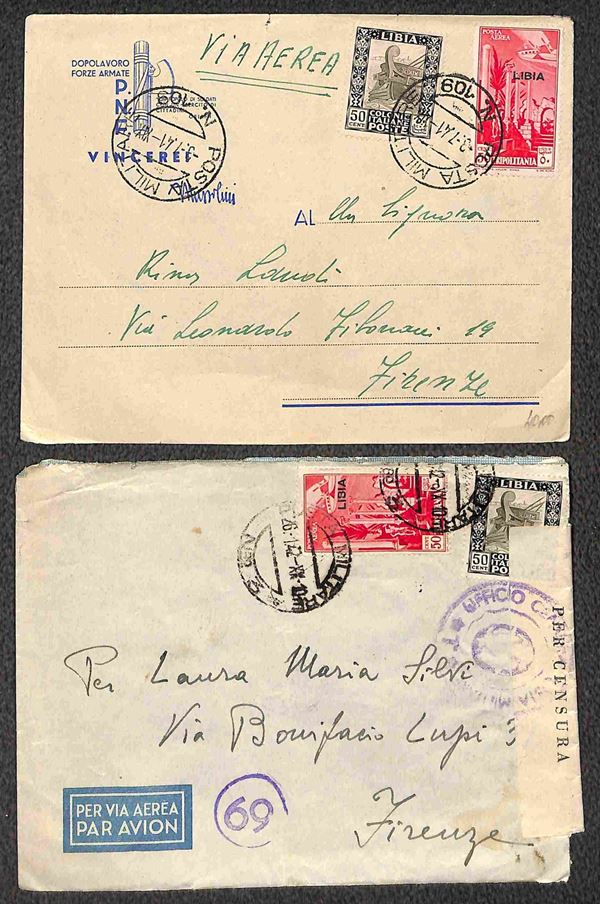 DOPOLAVORO
FORZE ARMATE
P.
N.
VINCERE!
Mussolini
VIA AEREA
LIBIA
50 CENT
COLONIE
POSTE
POSTA AEREA
LIBIA
TRIPOLITANIA
POSTA MILITARE N. 109
3-7.41
POSTA MILITARE N. 109
3-7.41
AL
Rina Landi
Via Leonardo 19
Firenze
LIBIA
50
LIBIA
50 CENT
26.1.42-XX-10
MILITARE
UFFICIO
PER CENSURA
Per Laura Maria Silvi
Via Bonifacio Lupi
Firenze
PER VIA AEREA
PAR AVION
69